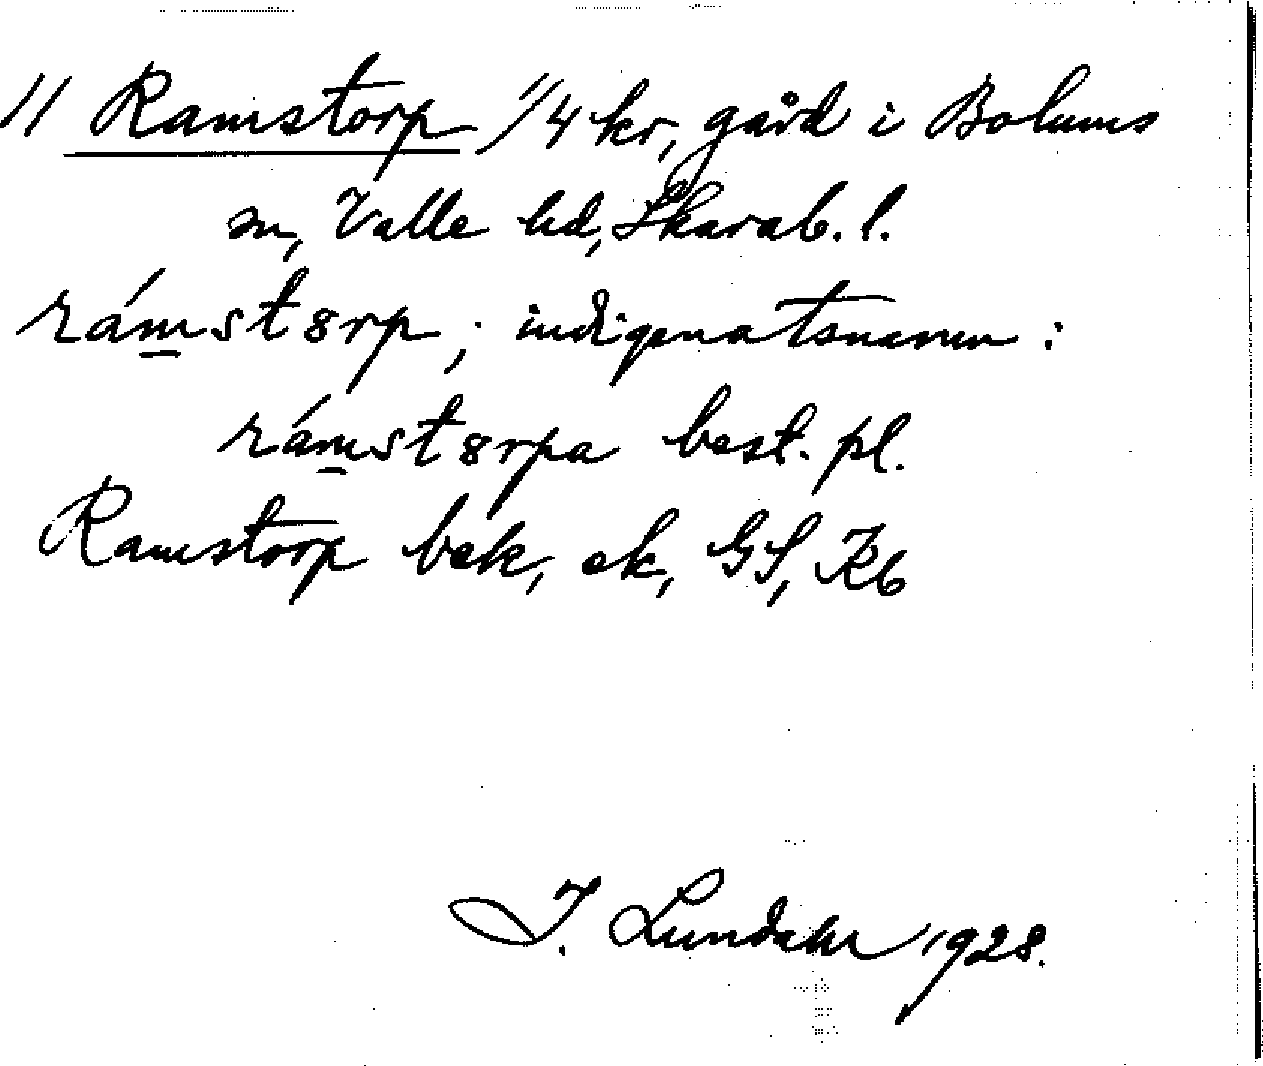 // Ramstorp 1/4 kr, gård i Bolums
sn, Valle hd, Skarab. l.
rámst8rp; indigenatsnamn:
rámst8rpa best. pl.
Ramstorp bek, ek, GS, Kb
I. Lundahl 1928.